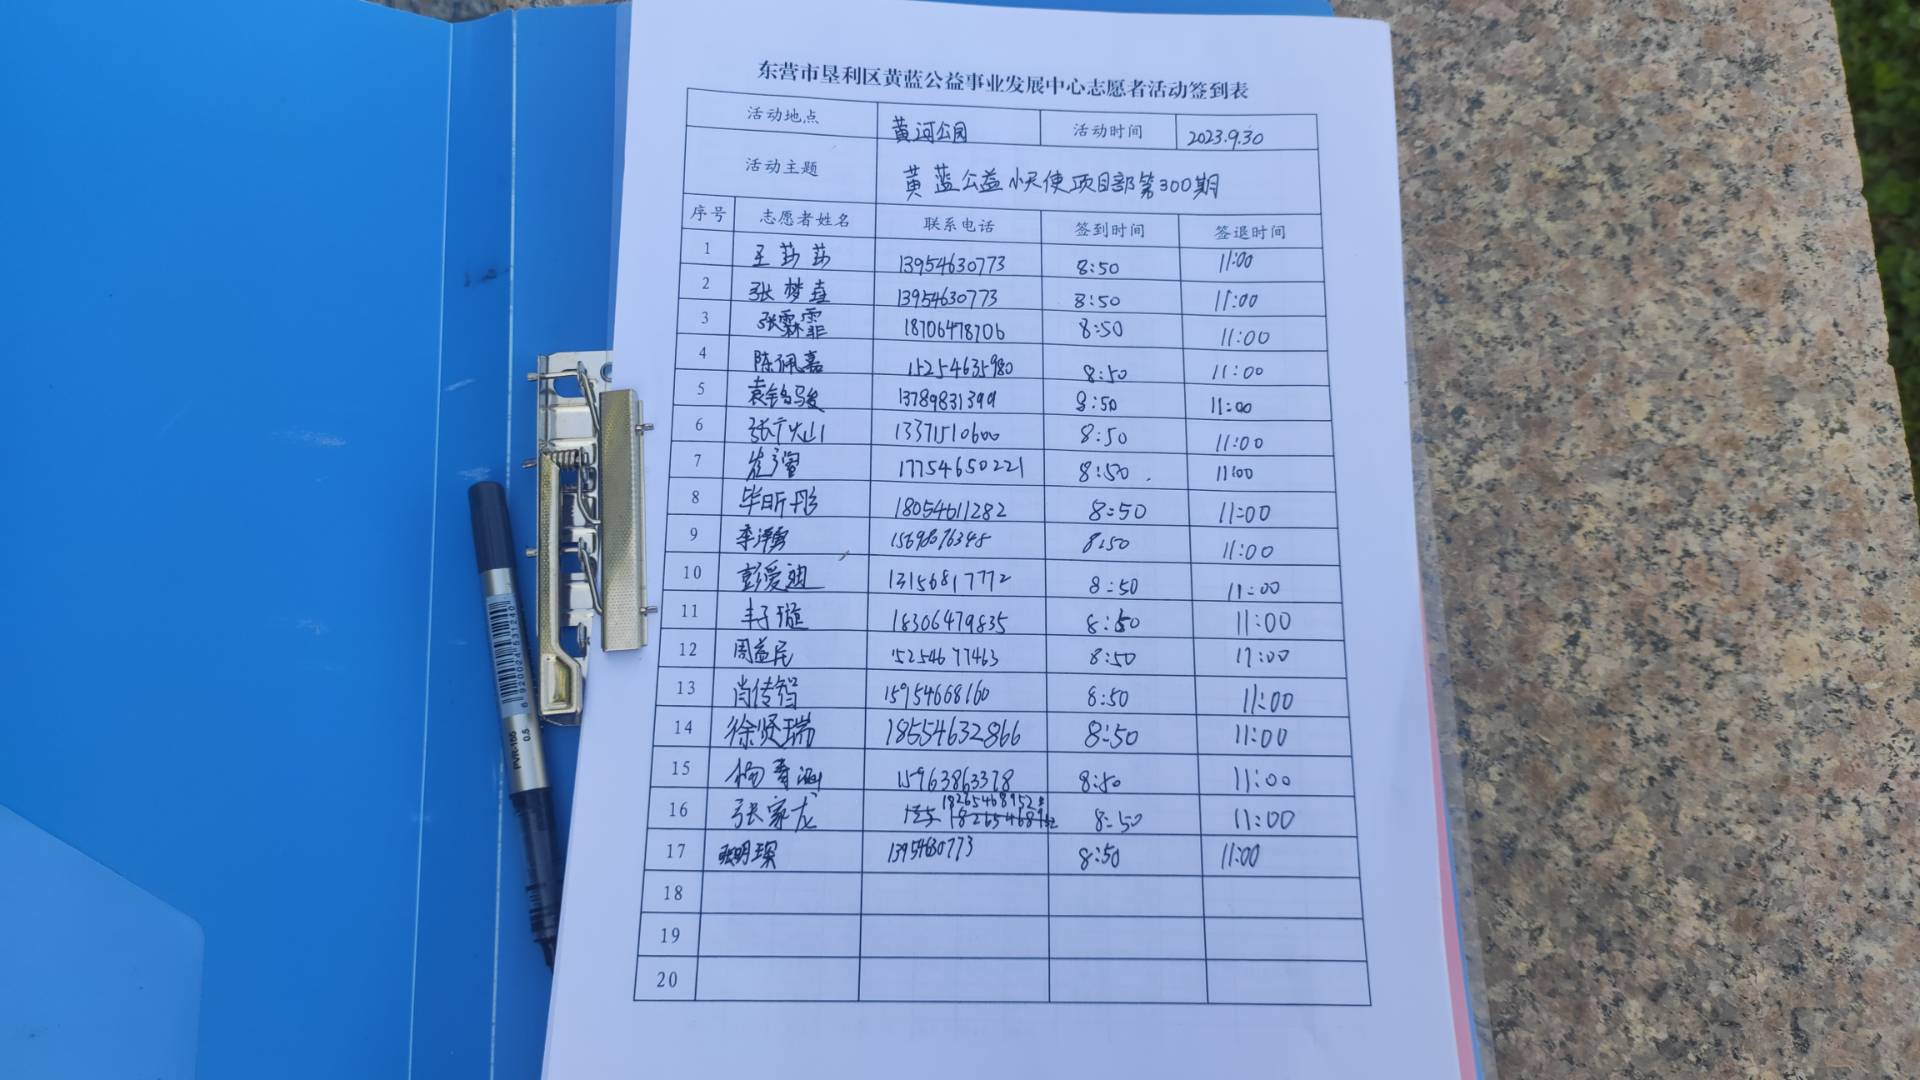 东营市垦利区黄蓝公益事业发展中心志愿者活动签到表
活动地点 黄河公园 活动时间 2023.9.30
活动主题 黄蓝公益小天使项目部第300期
序号 志愿者姓名 联系电话 签到时间 签退时间
1 王莎莎 13954630773 8:50 11:00
2 张梦垚 13954630773 8:50 11:00
3 张霖霏 18706478706 8:50 11:00
4 陈佩嘉 15254635980 8:50 11:00
5 袁铭骏 13789831399 8:50 11:00
6 张广火山 13371510600 8:50 11:00
7 17754650221 8:50 11:00
8 毕昕彤 18054611282 8:50 11:00
9 8:50 11:00
10 彭爱迪 13156817772 8:50 11:00
11 丰子璇 18306479835 8:50 11:00
12 周益民 15254677463 8:50 11:00
13 肖传智 15954668160 8:50 11:00
14 徐贤瑞 18554632866 8:50 11:00
15 杨青涵 15963863378 8:50 11:00
16 张家龙 18265468952 8:50 11:00
17 张明琪 13954630773 8:50 11:00
18
19
20
6920024531240
PVR-155
0.5